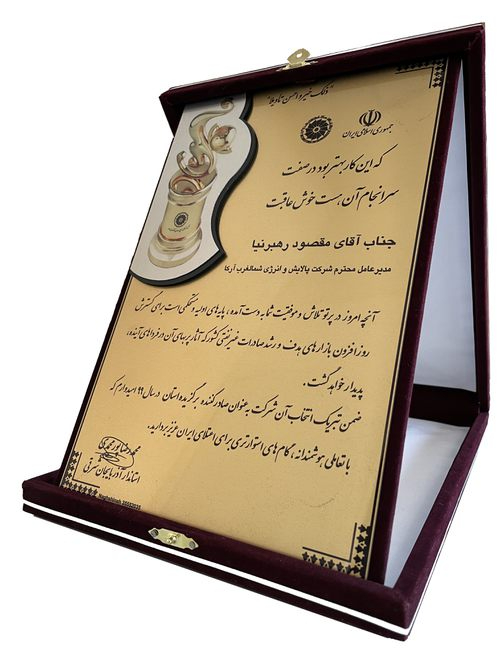 "ذلک خیر و احسن تاویلا"
جمهوری اسلامی ایران
که این کار بهتر بود در صفت
سرانجام آن، هست خوش عاقبت
جناب آقای مقصود رهبرنیا
مدیرعامل محترم شرکت پالایش و انرژی شمالغرب آرکا
آنچه امروز در پرتو تلاش و موفقیت شما به دست آمده، پایه‌های اولیه و مستحکمی است برای گسترش
روز افزون بازارهای هدف و رشد صادرات غیرنفتی کشور که آثار پربهای آن در فرداهای آینده،
پدیدار خواهد گشت.
ضمن تبریک انتخاب آن شرکت به عنوان صادرکننده برگزیده استان در سال ۹۹ امیدوارم که
با تعاملی هوشمندانه، گام‌های استوارتری برای اعتلای ایران عزیز بردارید.
محمدرضا پورمحمدی
استاندار آذربایجان شرقی